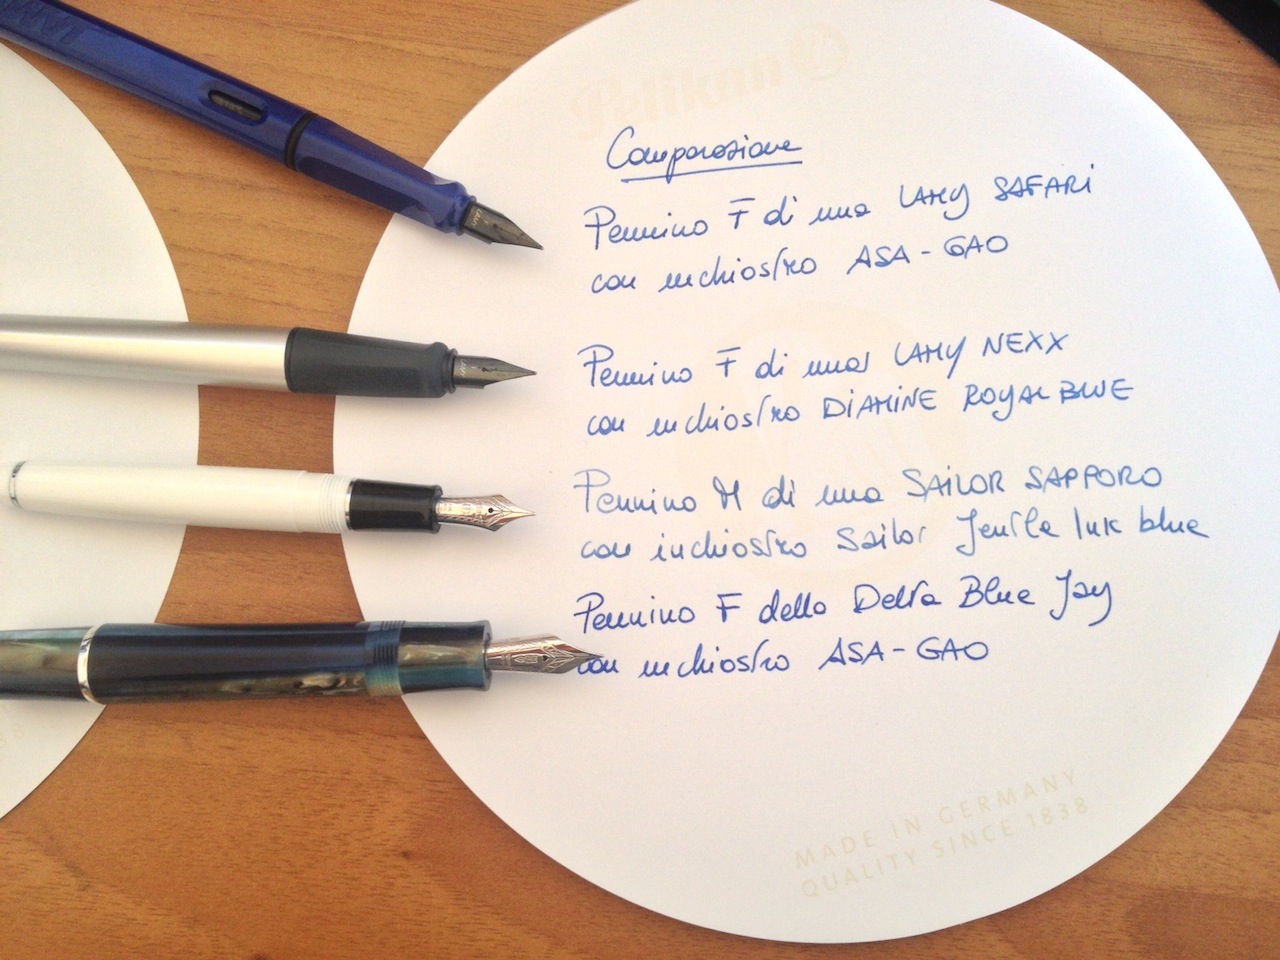 LAMY
Pelikan
Comparazione
Pennino F di una LAMY SAFARI
con inchiostro ASA-GAO
Pennino F di una LAMY NEXX
con inchiostro DIAMINE ROYAL BLUE
Pennino M di una SAILOR SAPPORO
con inchiostro Sailor Jentle Ink blue
Pennino F della Delta Blue Jay
con inchiostro ASA-GAO
MADE IN GERMANY
QUALITY SINCE 1838